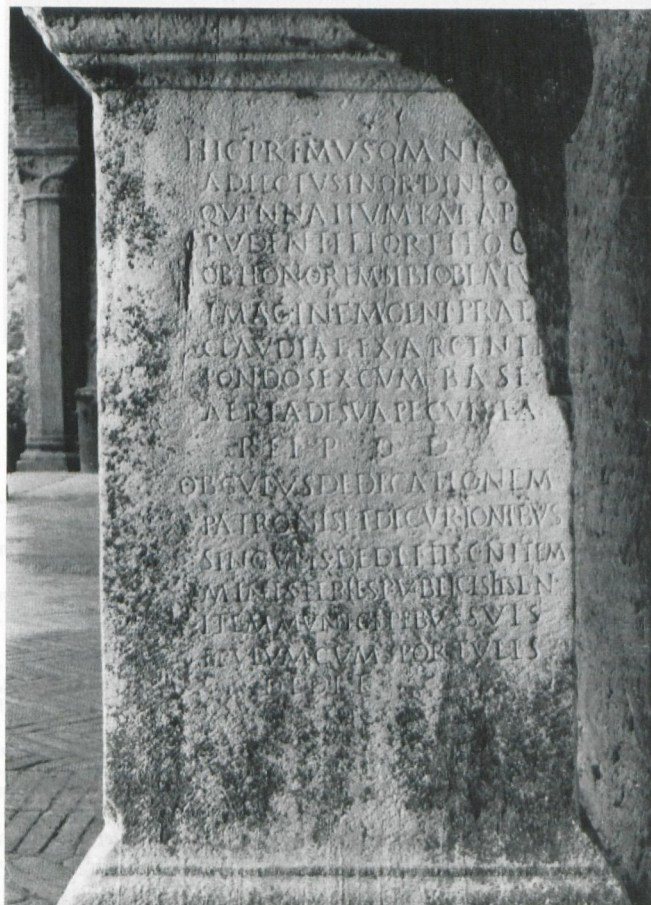 HIC PRIMVS OMNI
ADLECTVS IN ORDIN
QVENNALIVM KAL AP
PVDENTE ET ORFITO
OB HONOREM SIBI OBLATV
IMAGINEM GENI PRAE
CLAVDIAE EX ARGENT
PONDO SEX CVM BASE
AEREA DE SVA PECVNIA
REI P D D
OB CVIVS DEDICATIONEM
PATRONIS ET DECVRIONIBVS
SINGVLIS DEDIT HS C N ITEM
MINISTERIIS PVBLICIS HS L N
ITEM MVNICIPIBVS SVIS
EPVLVM CVM SPORTVLIS
DEDIT